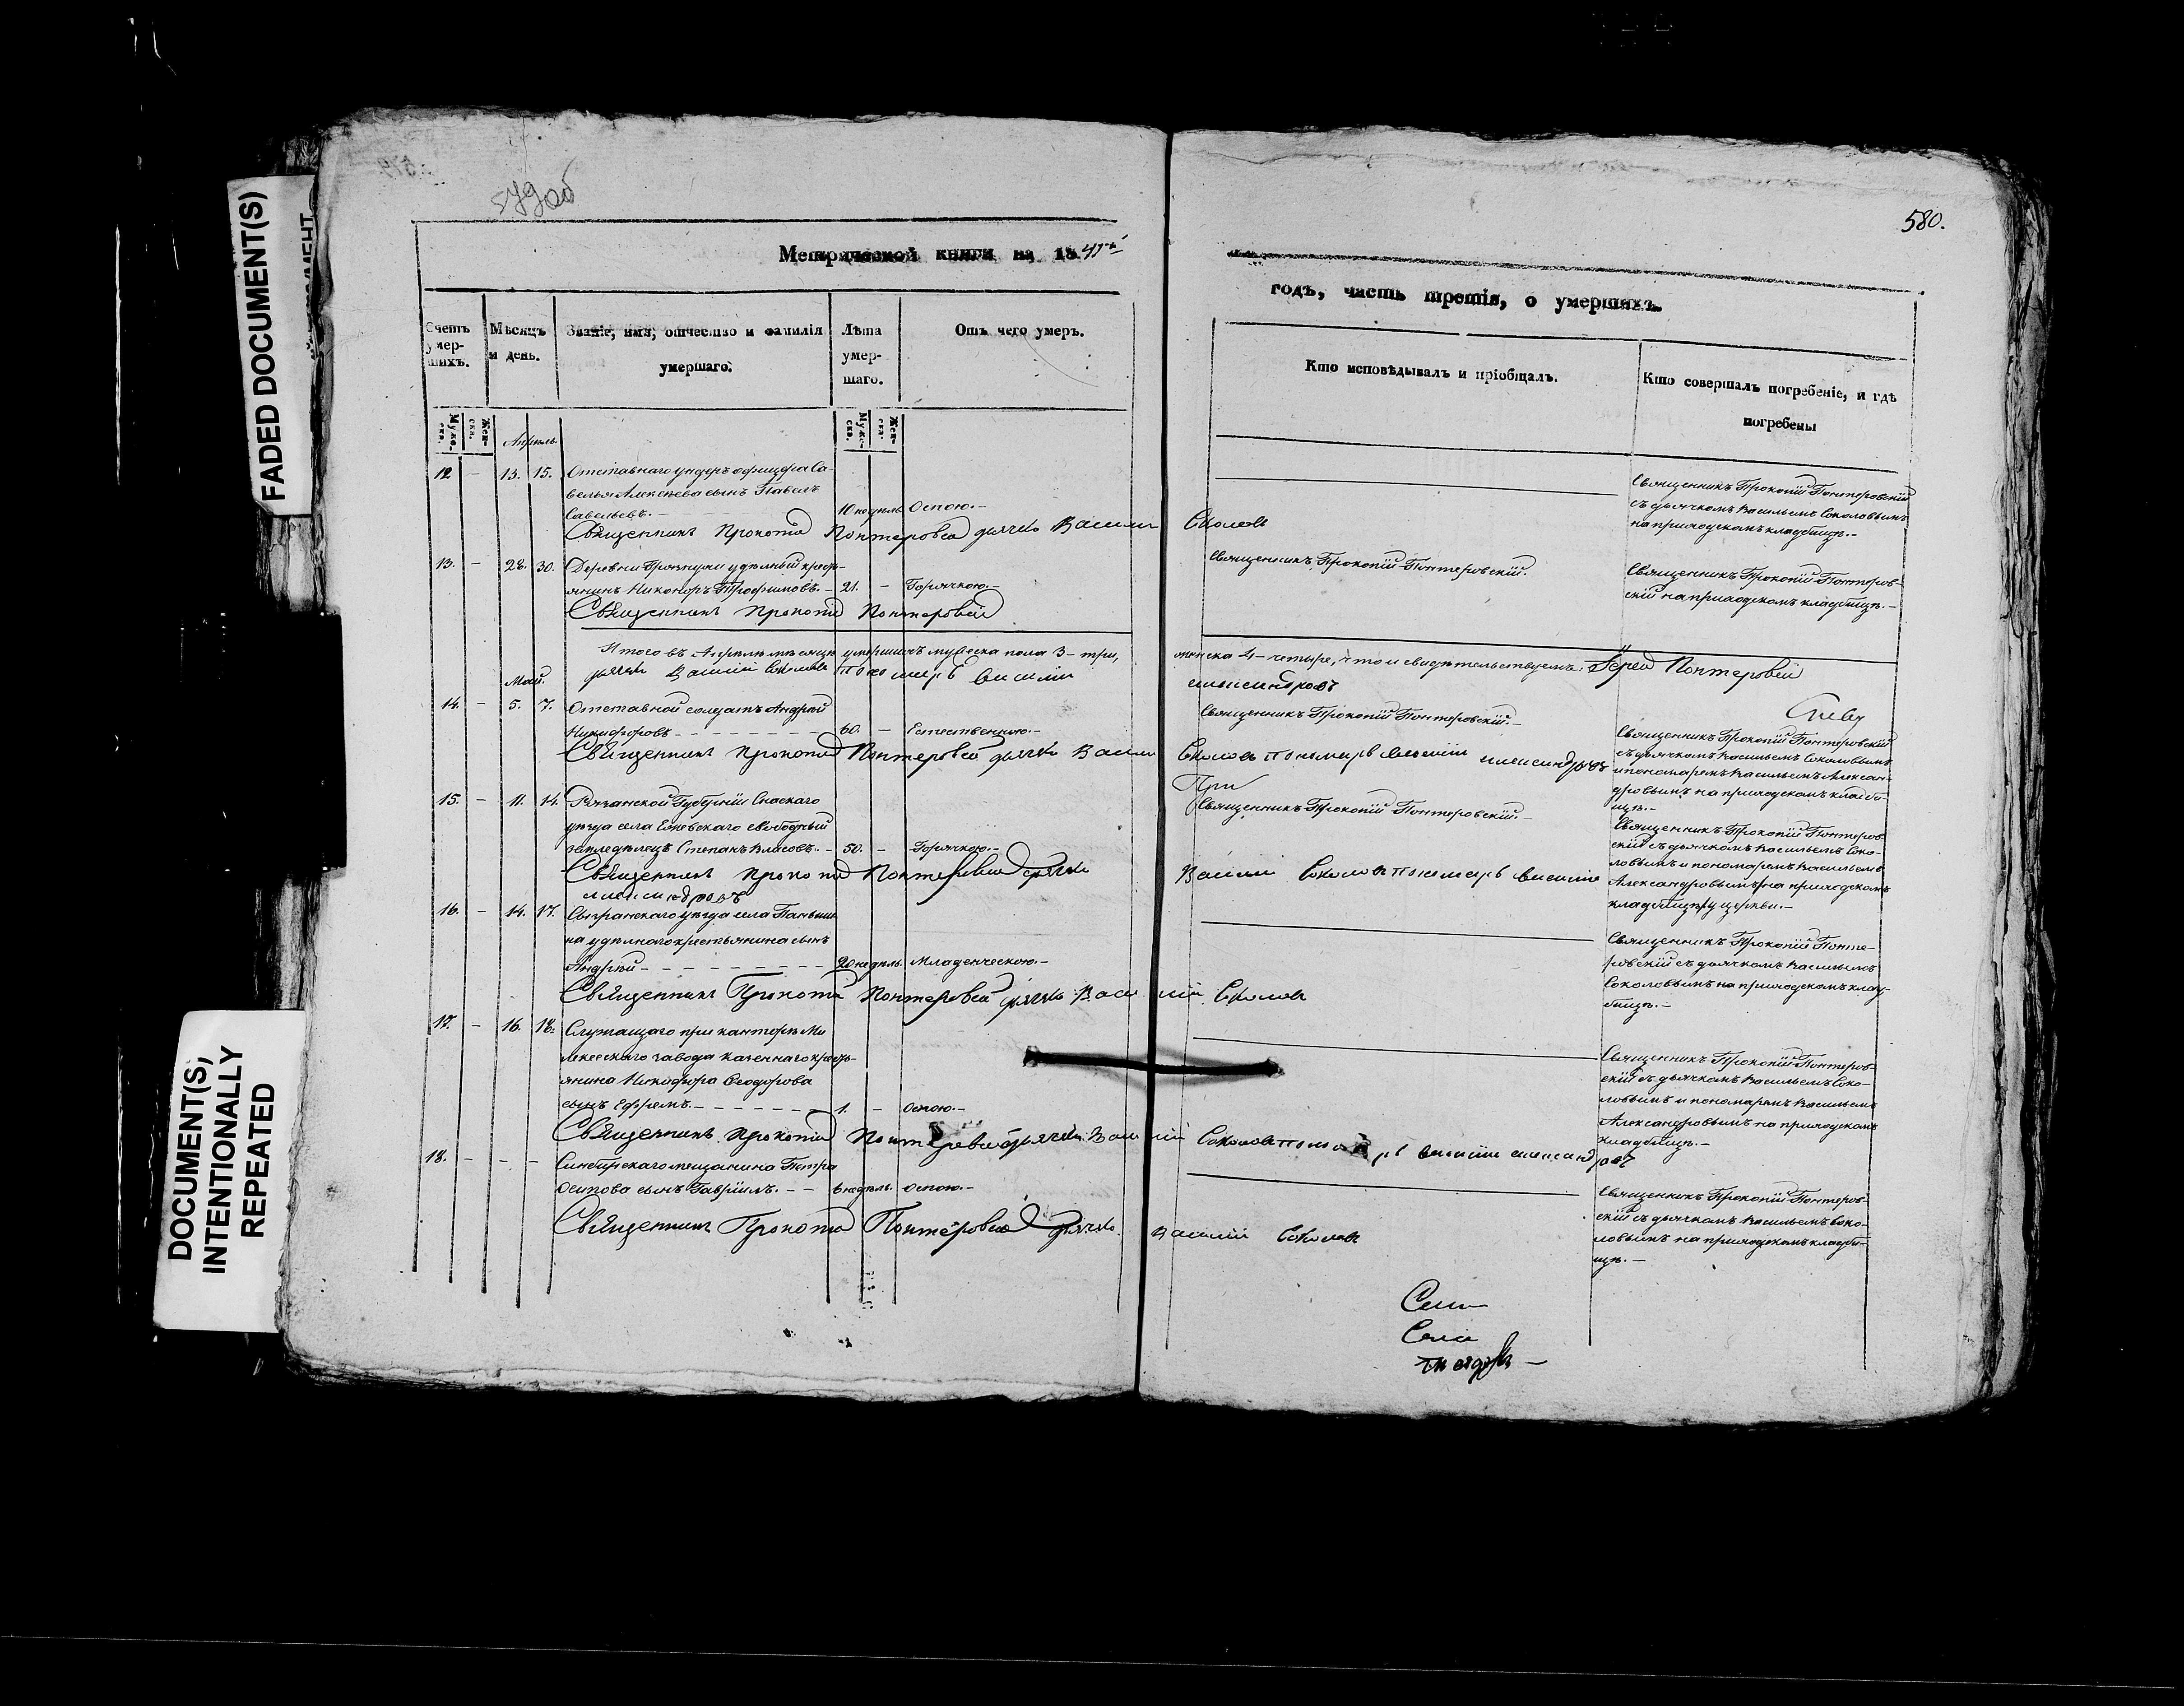 FADED DOCUMENT(S)
DOCUMENT(S)
INTENTIONALLY
REPEATED
579об
580.
Метрической книги на 1841й
годъ, часть третія, о умершихъ.
Счетъ умер-шихъ.
Мѣсяцъ и день.
Званіе, имя, отчество и фамилія
умершаго.
Лѣта умер-шаго.
Отъ чего умеръ.
Кто исповѣдывалъ и пріобщалъ.
Кто совершалъ погребеніе, и гдѣ
погребены
Муже-ска.
Жен-ска.
Муже-ска.
Жен-ска.
Апрѣль.
12 — 13. 15. Отставнаго ундеръ офицера Са-
велья Алексѣева сынъ Павелъ
Савельевъ. — 10 недѣль Оспою. —
Священникъ Прокопій Понтеровскій
съ дьячкомъ Васильемъ Соколовымъ
на приходскомъ кладбищѣ. —
Священникъ Прокопій Понтеровскій дьячекъ Василій Соколовъ
13. — 28. 30. Деревни удѣльный кресть-
янинъ Никоноръ Трофимовъ. — 21. — Горячкою. —
Священникъ Прокопій Понтеровскій.
Священникъ Прокопій Понтеров-
скій на приходскомъ кладбищѣ. —
Священникъ Прокопій Понтеровскій
Итого въ Апрѣлѣ мѣсяцѣ умершихъ мужеска пола 3 — три,
женска 4 — четыре, что и свидѣтельствуемъ: Іерей Понтеровскій
дьячекъ Василій Соколовъ пономарь Василій
Александровъ
Май.
14. — 5. 7. Отставной солдатъ Андрей
Никифоровъ — 60. — Естественною. —
Священникъ Прокопій Понтеровскій. —
Священникъ Прокопій Понтеровскій
съ дьячкомъ Васильемъ Соколовымъ
и пономаремъ Васильемъ Алексан-
дровымъ на приходскомъ кладби-
щѣ. —
Священникъ Прокопій Понтеровскій дьячекъ Василій Соколовъ пономарь Василій Александровъ
При
15. — 11. 14. Рязанской Губерніи Спаскаго
уѣзда села свободный
земледѣлецъ Степанъ Власовъ. — 50. — Горячкою. —
Священникъ Прокопій Понтеровскій. —
Священникъ Прокопій Понтеров-
скій съ дьячкомъ Васильемъ Соко-
ловымъ и пономаремъ Васильемъ
Александровымъ на приходскомъ
кладбищѣ у церкви. —
Священникъ Прокопій Понтеровскій дьячекъ Василій Соколовъ пономарь Василій
Александровъ
16. — 14. 17. Сызранскаго уѣзда села Паньши-
на удѣльнаго крестьянина сынъ
Андрей — 20 недѣль. Младенческою. —
Священникъ Прокопій Понте-
ровскій съ дьячкомъ Васильемъ
Соколовымъ на приходскомъ клад-
бищѣ. —
Священникъ Прокопій Понтеровскій дьячекъ Василій Соколовъ
17. — 16. 18. Служащаго при канторѣ Ме-
лекесскаго завода казеннаго кресть-
янина Никифора Ѳеодорова
сынъ Ефремъ. — 1. — Оспою. —
Священникъ Прокопій Понтеров-
скій съ дьячкомъ Васильемъ Соко-
ловымъ и пономаремъ Васильемъ
Александровымъ на приходскомъ
кладбищѣ. —
Священникъ Прокопій Понтеровскій дьячекъ Василій Соколовъ пономарь Василій Александровъ
18. — — — Синбирскаго мещанина Петра
Осипова сынъ Гавріилъ. — 6 недѣль. Оспою. —
Священникъ Прокопій Понтеров-
скій съ дьячкомъ Васильемъ Соко-
ловымъ на приходскомъ кладби-
щѣ. —
Священникъ Прокопій Понтеровскій дьячекъ Василій Соколовъ